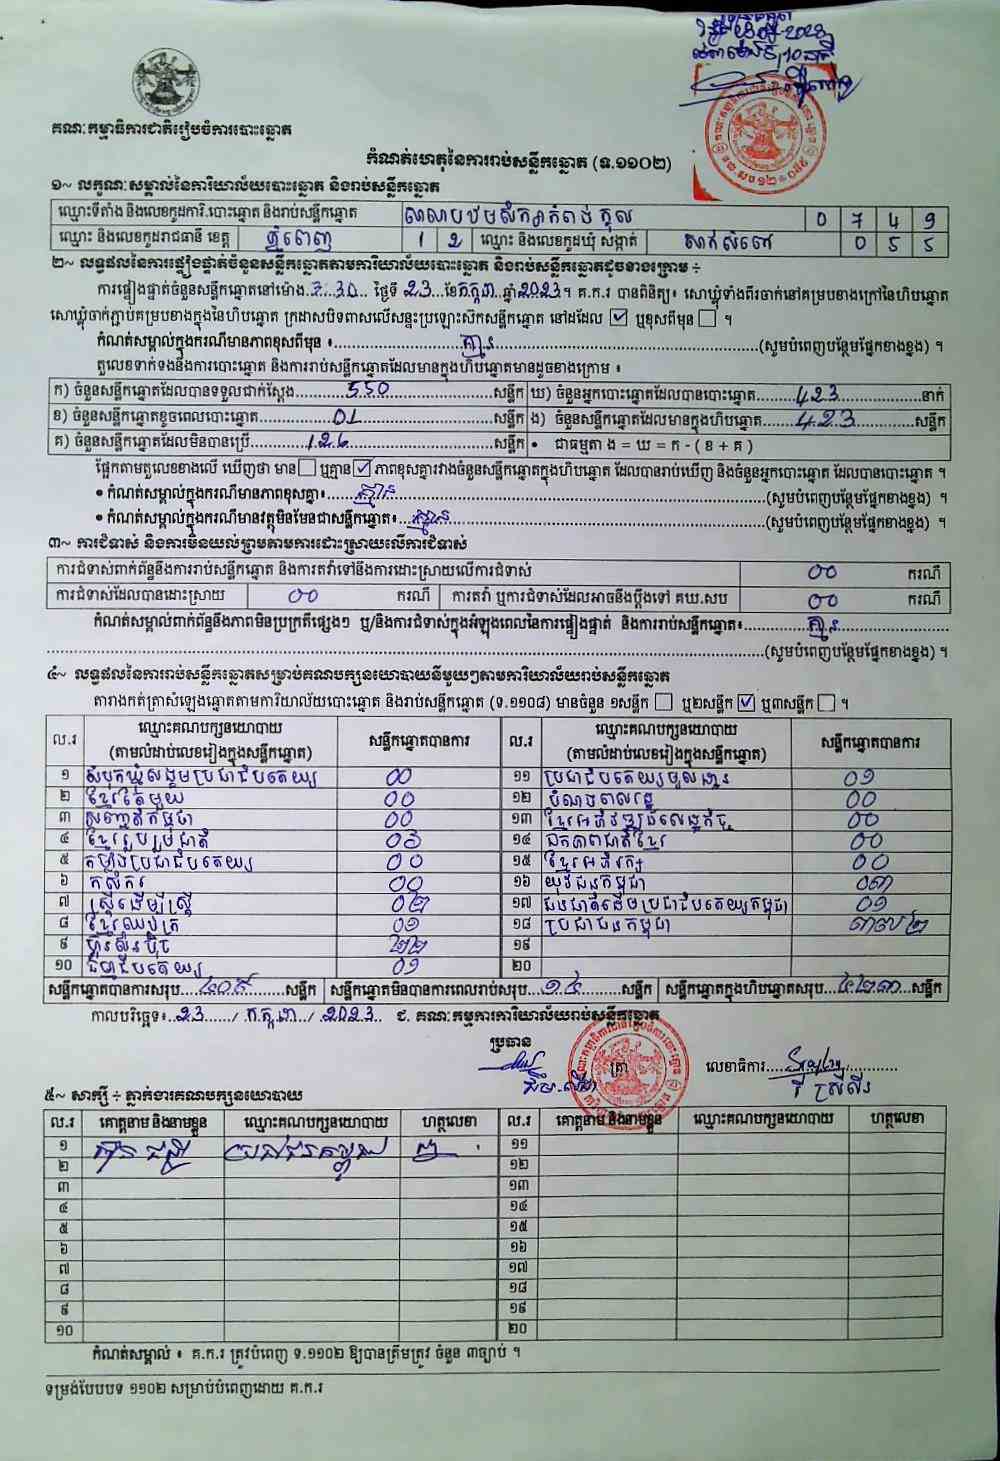 គណៈកម្មាធិការជាតិរៀបចំការបោះឆ្នោត
កំណត់ហេតុនៃការរាប់សន្លឹកឆ្នោត (ទ.១១០២)
១~ លក្ខណៈសម្គាល់នៃការិយាល័យបោះឆ្នោត និងរាប់សន្លឹកឆ្នោត
ឈ្មោះទីតាំង និងលេខកូដការិ.បោះឆ្នោត និងរាប់សន្លឹកឆ្នោត 0 7 4 9
ឈ្មោះ និងលេខកូដរាជធានី ខេត្ត ភ្នំពេញ 1 2 ឈ្មោះ និងលេខកូដឃុំ សង្កាត់ 0 5 5
២~ លទ្ធផលនៃការផ្ទៀងផ្ទាត់ចំនួនសន្លឹកឆ្នោតតាមការិយាល័យបោះឆ្នោត និងរាប់សន្លឹកឆ្នោតដូចខាងក្រោម ÷
ការផ្ទៀងផ្ទាត់ចំនួនសន្លឹកឆ្នោតនៅម៉ោង 3:30 ថ្ងៃទី 23 ខែ កក្កដា ឆ្នាំ 2023 ។ គ.ក.រ បានពិនិត្យ៖ សោឃ្លុំទាំងពីរចាក់នៅគម្របខាងក្រៅនៃហិបឆ្នោត
សោឃ្លុំចាក់ភ្ជាប់គម្របខាងក្នុងនៃហិបឆ្នោត ក្រដាសបិទពាសលើសន្ទះប្រឡោះសិកសន្លឹកឆ្នោត នៅដដែល ☑ ឬខុសពីមុន ☐ ។
កំណត់សម្គាល់ក្នុងករណីមានភាពខុសពីមុន ៖ គ្មាន (សូមបំពេញបន្ថែមផ្នែកខាងខ្នង) ។
តួលេខទាក់ទងនឹងការបោះឆ្នោត និងការរាប់សន្លឹកឆ្នោតដែលមានក្នុងហិបឆ្នោតមានដូចខាងក្រោម ៖
ក) ចំនួនសន្លឹកឆ្នោតដែលបានទទួលជាក់ស្តែង 550 សន្លឹក ឃ) ចំនួនអ្នកបោះឆ្នោតដែលបានបោះឆ្នោត 423 នាក់
ខ) ចំនួនសន្លឹកឆ្នោតខូចពេលបោះឆ្នោត 01 សន្លឹក ង) ចំនួនសន្លឹកឆ្នោតដែលមានក្នុងហិបឆ្នោត 423 សន្លឹក
គ) ចំនួនសន្លឹកឆ្នោតដែលមិនបានប្រើ 126 សន្លឹក • ជាធម្មតា ង = ឃ = ក - ( ខ + គ )
ផ្អែកតាមតួលេខខាងលើ ឃើញថា មាន ☐ ឬគ្មាន ☑ ភាពខុសគ្នារវាងចំនួនសន្លឹកឆ្នោតក្នុងហិបឆ្នោត ដែលបានរាប់ឃើញ និងចំនួនអ្នកបោះឆ្នោត ដែលបានបោះឆ្នោត ។
• កំណត់សម្គាល់ក្នុងករណីមានភាពខុសគ្នា៖ គ្មាន (សូមបំពេញបន្ថែមផ្នែកខាងខ្នង) ។
• កំណត់សម្គាល់ក្នុងករណីមានវត្ថុមិនមែនជាសន្លឹកឆ្នោត៖ គ្មាន (សូមបំពេញបន្ថែមផ្នែកខាងខ្នង) ។
៣~ ការជំទាស់ និងការមិនយល់ព្រមតាមការដោះស្រាយលើការជំទាស់
ការជំទាស់ពាក់ព័ន្ធនឹងការរាប់សន្លឹកឆ្នោត និងការតវ៉ាទៅនឹងការដោះស្រាយលើការជំទាស់ 00 ករណី
ការជំទាស់ដែលបានដោះស្រាយ 00 ករណី ការតវ៉ា ឬការជំទាស់ដែលអាចនឹងប្តឹងទៅ គឃ.សប 00 ករណី
កំណត់សម្គាល់ពាក់ព័ន្ធនឹងភាពមិនប្រក្រតីផ្សេងៗ ឬ/និងការជំទាស់ក្នុងអំឡុងពេលនៃការផ្ទៀងផ្ទាត់ និងការរាប់សន្លឹកឆ្នោត៖ គ្មាន
(សូមបំពេញបន្ថែមផ្នែកខាងខ្នង) ។
៤~ លទ្ធផលនៃការរាប់សន្លឹកឆ្នោតសម្រាប់គណបក្សនយោបាយនីមួយៗតាមការិយាល័យរាប់សន្លឹកឆ្នោត
តារាងកត់ត្រាសំឡេងឆ្នោតតាមការិយាល័យបោះឆ្នោត និងរាប់សន្លឹកឆ្នោត (ទ.១១០៨) មានចំនួន ១សន្លឹក ☐ ឬ២សន្លឹក ☑ ឬ៣សន្លឹក ☐ ។
ល.រ ឈ្មោះគណបក្សនយោបាយ (តាមលំដាប់លេខរៀងក្នុងសន្លឹកឆ្នោត) សន្លឹកឆ្នោតបានការ ល.រ ឈ្មោះគណបក្សនយោបាយ (តាមលំដាប់លេខរៀងក្នុងសន្លឹកឆ្នោត) សន្លឹកឆ្នោតបានការ
១ សំបុកឃ្មុំសង្គមប្រជាធិបតេយ្យ 00 ១១ ប្រជាធិបតេយ្យមូលដ្ឋាន 0១
២ ខ្មែរតែមួយ 00 ១២ 00
៣ សញ្ជាតិកម្ពុជា 00 ១៣ ខ្មែរអភិវឌ្ឍន៍សេដ្ឋកិច្ច 00
៤ ខ្មែររួបរួមជាតិ ១៤ ឯកភាពជាតិខ្មែរ 00
៥ កម្លាំងប្រជាធិបតេយ្យ 00 ១៥ ខ្មែរអភិរក្ស 00
៦ កសិករ 00 ១៦ យុវជនកម្ពុជា 0៣
៧ ស្ត្រីដើម្បីស្ត្រី 0២ ១៧ ជនជាតិដើមប្រជាធិបតេយ្យកម្ពុជា 0១
៨ ខ្មែរឈប់ក្រ 0១ ១៨ ប្រជាជនកម្ពុជា ៣៧២
៩ ហ្វ៊ុនស៊ិនប៉ិច ២២ ១៩
១០ ធម្មាធិបតេយ្យ 0១ ២០
សន្លឹកឆ្នោតបានការសរុប ៤០៩ សន្លឹក សន្លឹកឆ្នោតមិនបានការពេលរាប់សរុប ១៤ សន្លឹក សន្លឹកឆ្នោតក្នុងហិបឆ្នោតសរុប ៤២៣ សន្លឹក
កាលបរិច្ឆេទ៖ 23 / កក្កដា / 2023 ជ. គណៈកម្មការការិយាល័យរាប់សន្លឹកឆ្នោត
ប្រធាន
ត្រា លេខាធិការ
៥~ សាក្សី ÷ ភ្នាក់ងារគណបក្សនយោបាយ
ល.រ គោត្តនាម និងនាមខ្លួន ឈ្មោះគណបក្សនយោបាយ ហត្ថលេខា ល.រ គោត្តនាម និងនាមខ្លួន ឈ្មោះគណបក្សនយោបាយ ហត្ថលេខា
១ ប្រជាជនកម្ពុជា ១១
២ ១២
៣ ១៣
៤ ១៤
៥ ១៥
៦ ១៦
៧ ១៧
៨ ១៨
៩ ១៩
១០ ២០
កំណត់សម្គាល់ ៖ គ.ក.រ ត្រូវបំពេញ ទ.១១០២ ឱ្យបានត្រឹមត្រូវ ចំនួន ៣ច្បាប់ ។
ទម្រង់បែបបទ ១១០២ សម្រាប់បំពេញដោយ គ.ក.រ